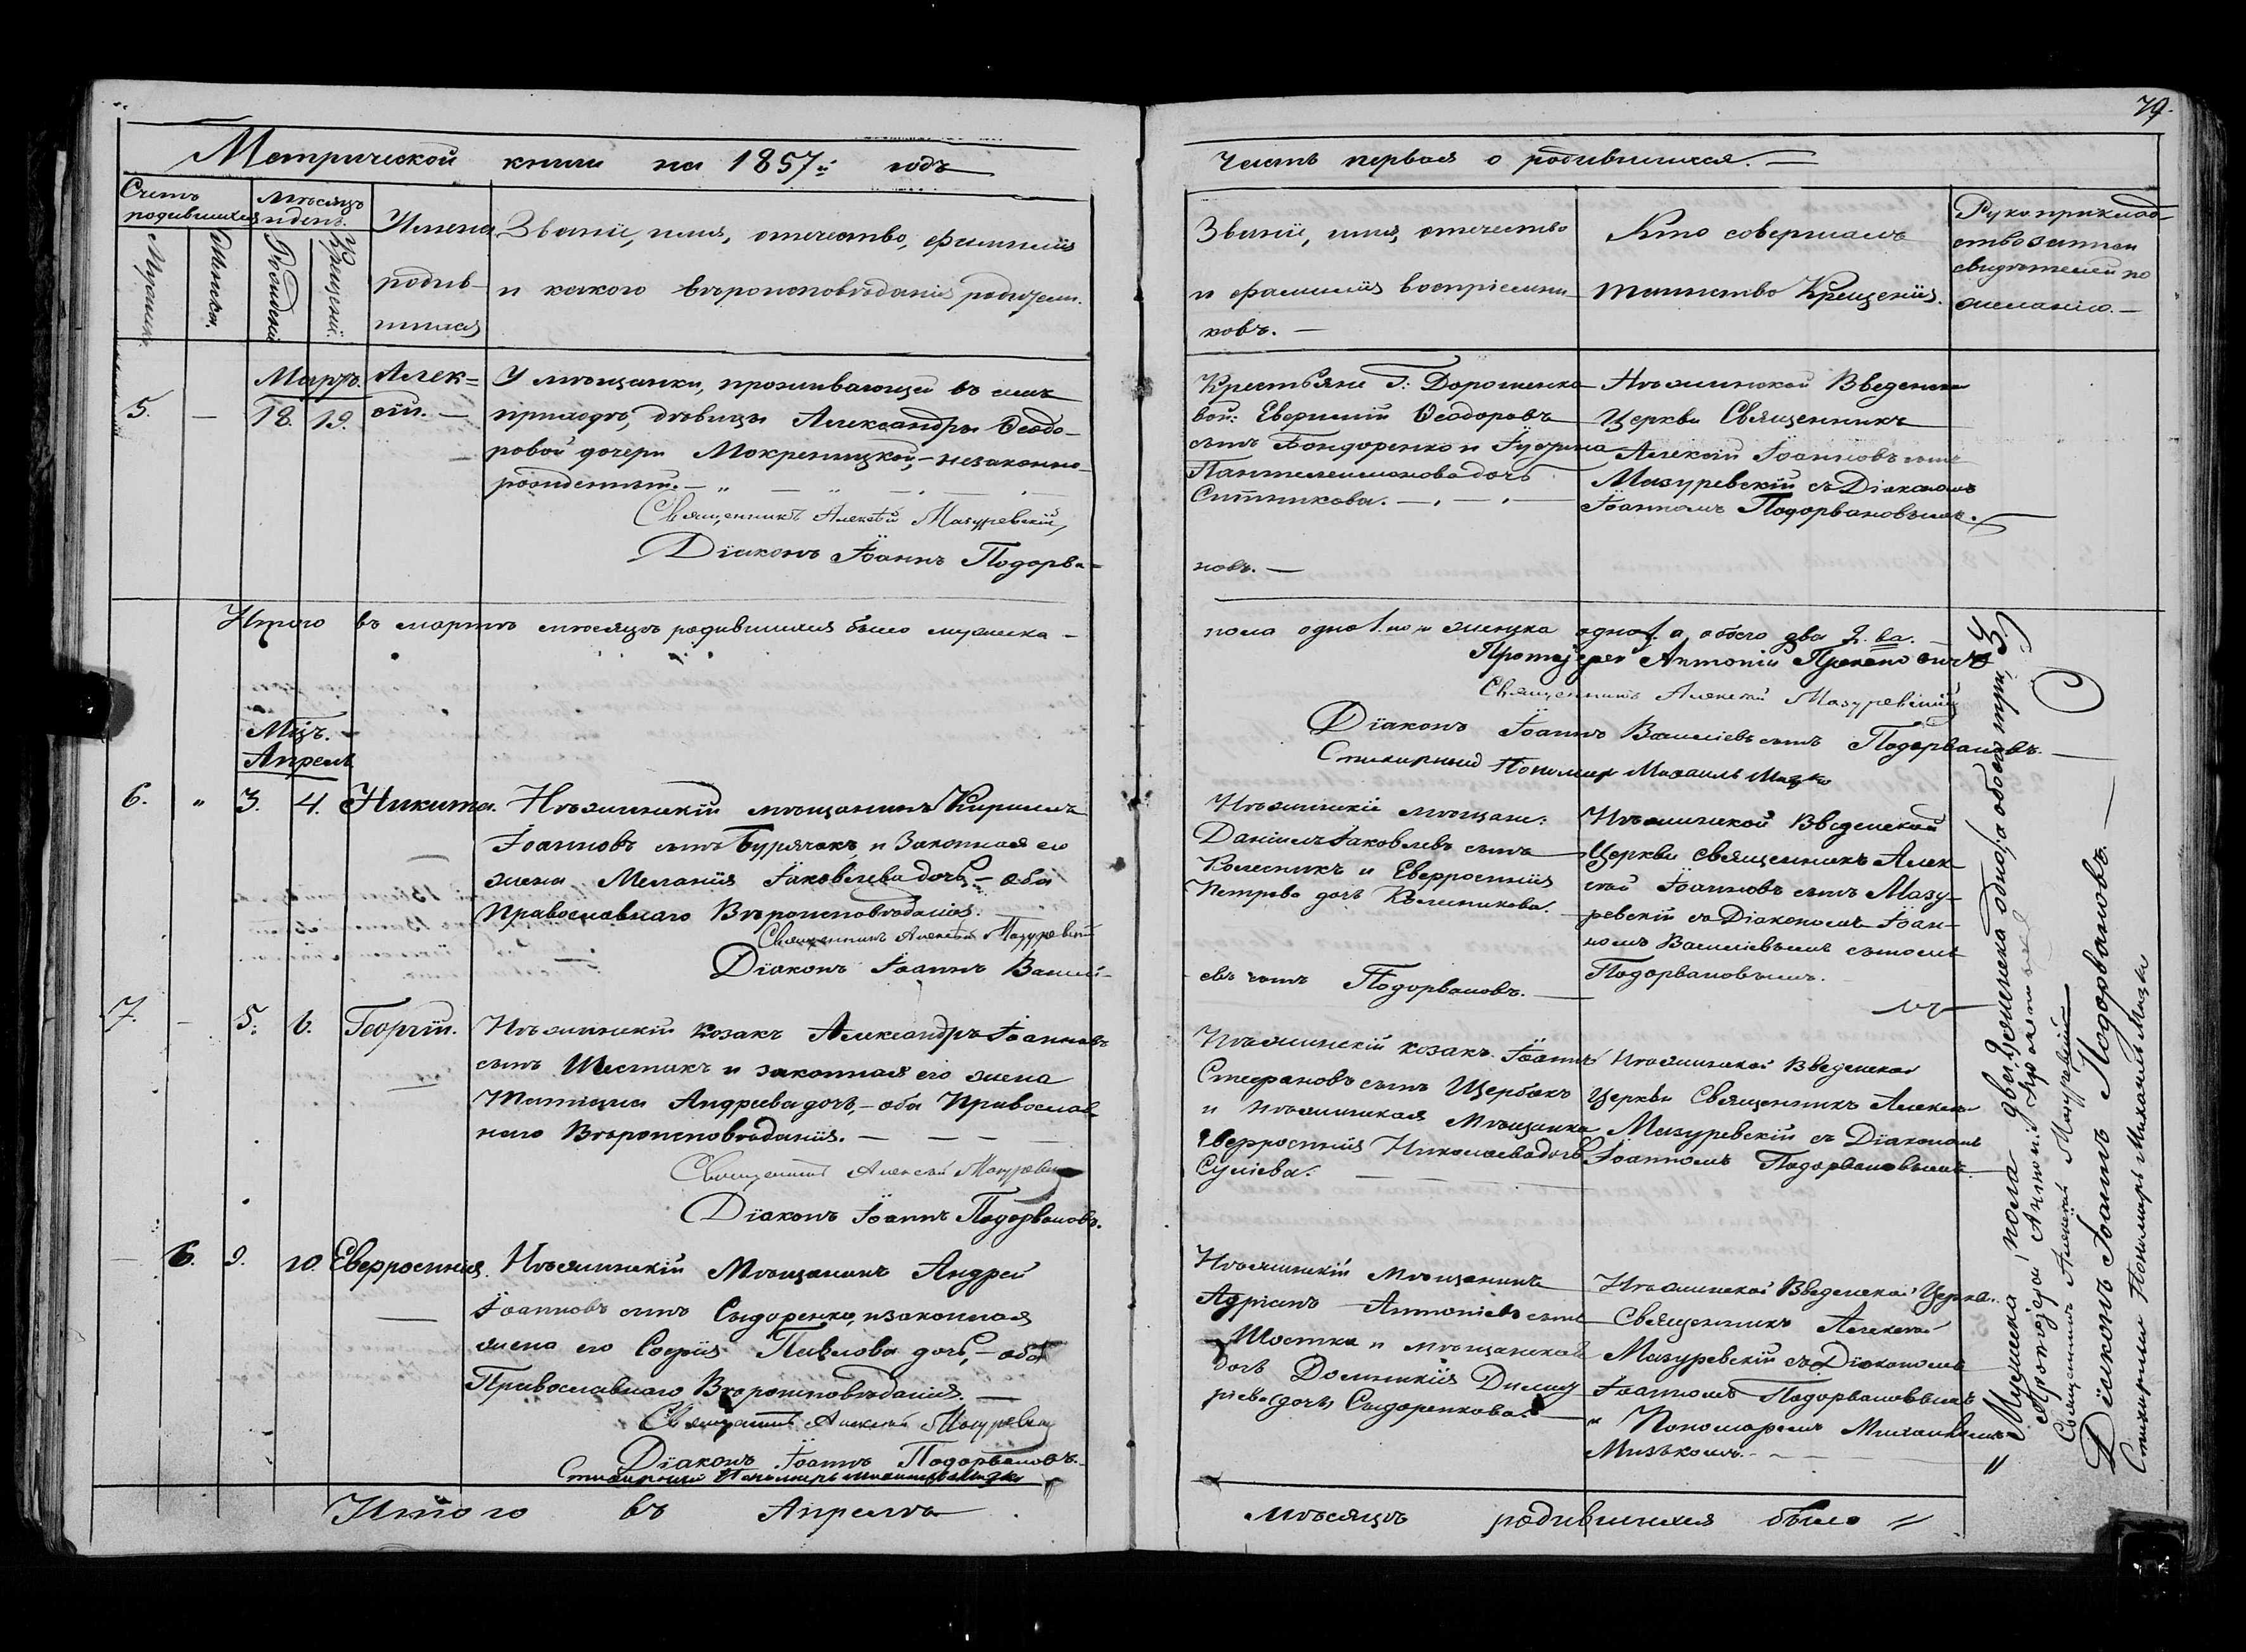 79.
Метрической книги на 1857й годъ
Часть первая о родившихся.
Счетъ родившихся
Мужска.
Женска.
Мѣсяцъ и день.
Рожденія
Крещенія.
Имена родив-
шихся
Званіе, имя, отечество, фамилія
и какого вѣроисповѣданія родители.
Званіе, имя, отечество
и фамилія воспріемни-
ковъ.
Кто совершалъ
таинство Крещенія.
Рукоприклад-
ство
свидѣтелей по
желанію.
Мартъ.
5. — 18. 19.
Алек-
сій.
У мѣщанки, проживающей въ семъ
приходѣ, дѣвицы Александры Ѳеодо-
ровой дочери Мокреницкой, — незаконно-
рожденный.
Священникъ Алексѣй Мазуревскій,
Діаконъ Іоаннъ Подорва-
Крестьяне Г: Дорошенко-
вой: Евфимій Ѳеодоровъ
сынъ Бондоренко и
Пантелеимонова дочь
Ситникова.
новъ.
Нѣжинской Введенской
Церкви Священникъ
Алексій Іоанновъ сынъ
Мазуревскій съ Діакономъ
Іоанномъ Подорвановымъ.
Итого въ мартѣ мѣсяцѣ родившихся было мужска-
пола одно 1. но и женска одно 1. а обоего два 2. ва.
Протоіерей Антоній
Священникъ Алексѣй Мазуревскій
Діаконъ Іоаннъ Василіевъ сынъ Подорвановъ.
Стихарный Пономарь Михаилъ
Мцъ.
Апрель
6. " 3. 4. Никита.
Нѣжинскій мѣщанинъ Кириллъ
Іоанновъ сынъ Бурячокъ, и Законная его
жена Меланія Іаковлева дочь, — оба
Православнаго Вѣроисповѣданія.
Священникъ Алексѣй Мазуревскій
Діаконъ Іоаннъ Василі-
Нѣжинскіе мѣщане:
Даніилъ Іаковлевъ сынъ
Колесникъ и Евфросинія
Петрова дочь Колесникова.
евъ сынъ Подорвановъ.
Нѣжинской Введенской
Церкви священникъ Алек-
сѣй Іоанновъ сынъ Мазу-
ревскій съ Діакономъ Іоан-
номъ Василіевымъ сыномъ
Подорвановымъ.
7. — 5. 6. Георгій.
Нѣжинскій козакъ Александръ Іоанновъ
сынъ Шестакъ и законная его жена
Татіана Андреева дочь, — оба Православ-
наго Вѣроисповѣданія.
Священникъ Алексѣй Мазуревскій
Діаконъ Іоаннъ Подорвановъ.
Нѣжинскій козакъ Іоаннъ
Стефановъ сынъ Щербакъ
и нѣжинская Мѣщанка
Евфросинія Николаева дочь
Нѣжинской Введенской
Церкви Священникъ Алексѣй
Мазуревскій съ Діакономъ
Іоанномъ Подорвановымъ.
— 6. 9. 10. Евфросинія.
Нѣжинскій Мѣщанинъ Андрей
Іоанновъ сынъ Сидоренко, и законная
жена его Софія Павлова дочь, — оба
Православнаго Вѣроисповѣданія.
Священникъ Алексѣй Мазуревскій
Діаконъ Іоаннъ Подорвановъ.
Стихарный Пономарь
Нѣжинскій мѣщанинъ
Адріанъ Антоніевъ сынъ
Шостка и мѣщанская
дочь Домникія
дочь Сидоренкова.
Нѣжинской Введенской Церкви
Священникъ Алексѣй
Мазуревскій съ Діакономъ
Іоанномъ Подорвановымъ
и Пономаремъ Михаиломъ
Итого въ Апрелѣ
мѣсяцѣ родившихся было
Мужска пола два 2. женска одно 1. а обоего три, 3.
Протоіерей Антоній
Священникъ Алексѣй Мазуревскій
Діаконъ Іоаннъ Подорвановъ.
Стихарный Пономарь Михаилъ